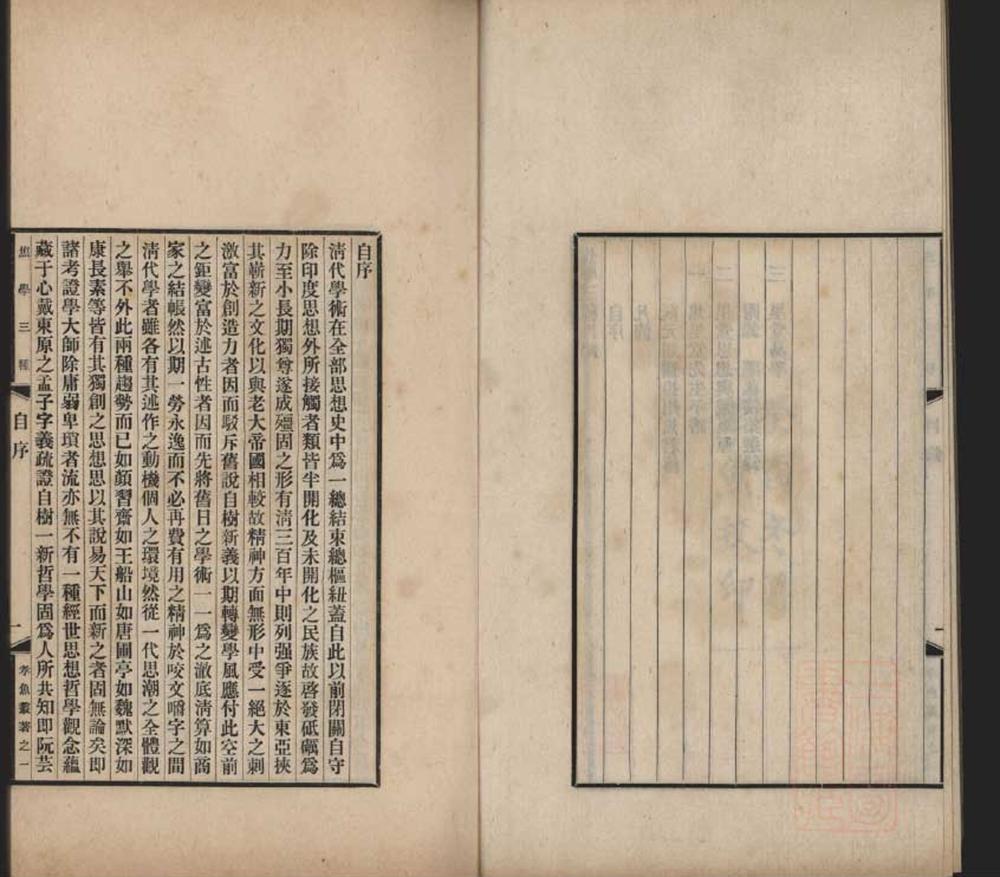 自序
淸代學術在全部思想史中爲一總結束總樞紐蓋自此以前閉關自守
除印度思想外所接觸者類皆半開化及未開化之民族故啓發砥礪爲
力至小長期獨尊遂成殭固之形有淸三百年中則列强爭逐於東亞挾
其嶄新之文化以與老大帝國相較故精神方面無形中受一絕大之刺
激富於創造力者因而駁斥舊說自樹新義以期轉變學風應付此空前
之鉅變富於述古性者因而先將舊日之學術一一爲之澈底淸算如商
家之結帳然以期一勞永逸而不必再費有用之精神於咬文嚼字之間
淸代學者雖各有其述作之動機個人之環境然從一代思潮之全體觀
之舉不外此兩種趨勢而已如顏習齋如王船山如唐圃亭如魏默深如
康長素等皆有其獨創之思想思以其說易天下而新之者固無論矣即
諸考證學大師除庸弱卑瑣者流亦無不有一種經世思想哲學觀念蘊
藏于心戴東原之孟子字義疏證自樹一新哲學固爲人所共知即阮芸
焦學三種
自序
一
孝魚叢著之一